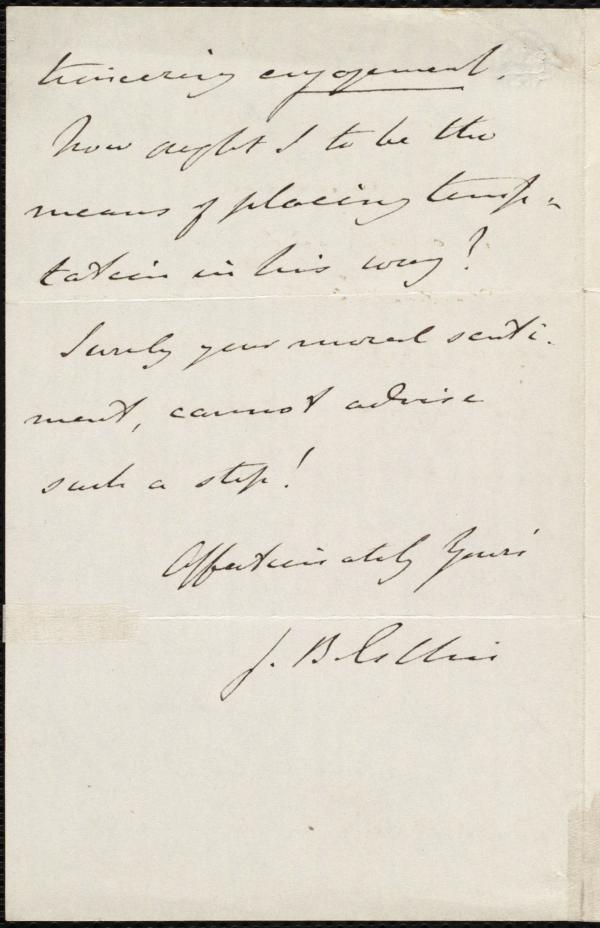 engagement.
Now ought I to be the
means of placing temp-
tation in his way?
Surely your moral senti-
ment, cannot advise
such a step!
Affectionately Yours
J. B. Estlin